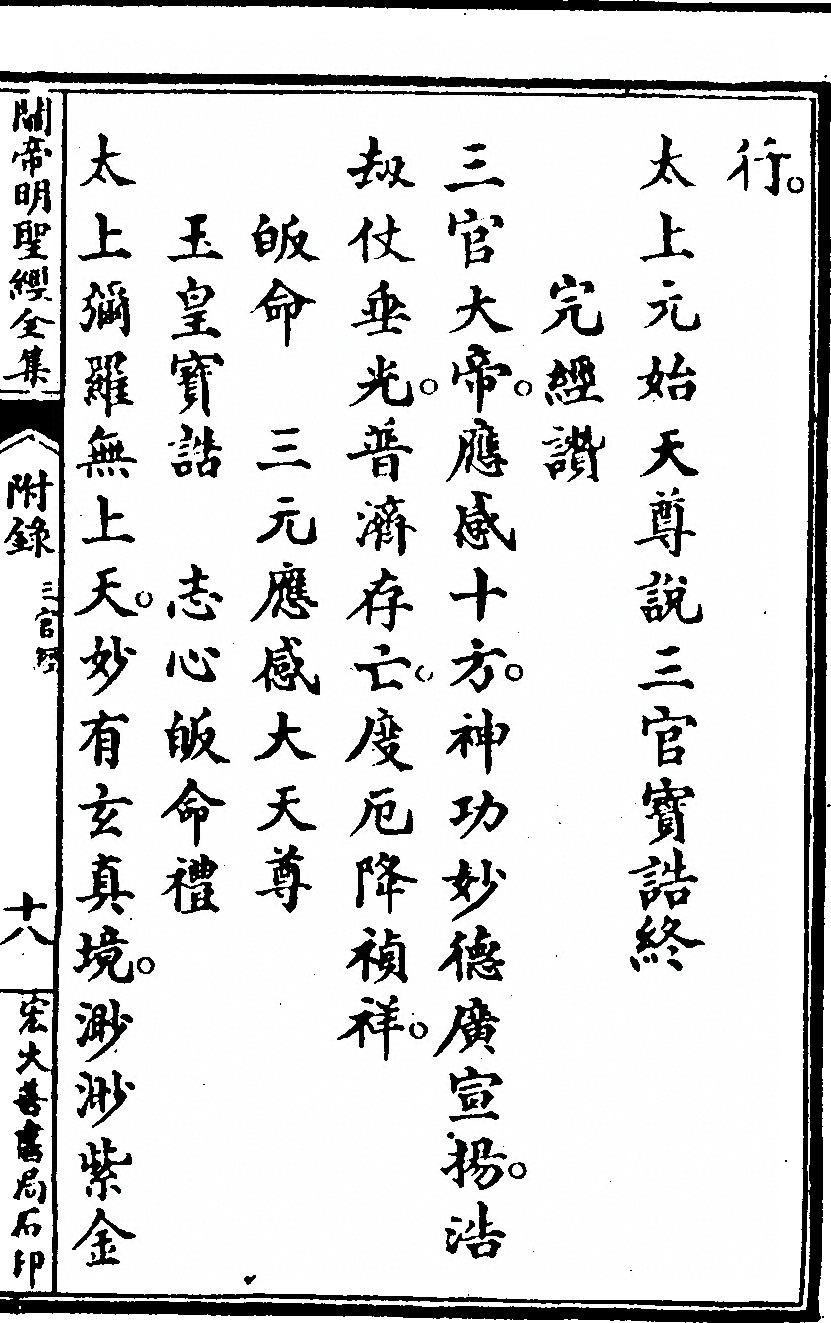 行。
太上元始天尊說三官寶誥終
完經讚
三官大帝。應感十方。神功妙德廣宣揚。浩
劫仗垂光。普濟存亡。度厄降禎祥。
皈命　三元應感大天尊
玉皇寶誥　志心皈命禮
太上彌羅無上天。妙有玄真境。渺渺紫金
關帝明聖經全集
附錄
三官經
十八
宏大善書局石印